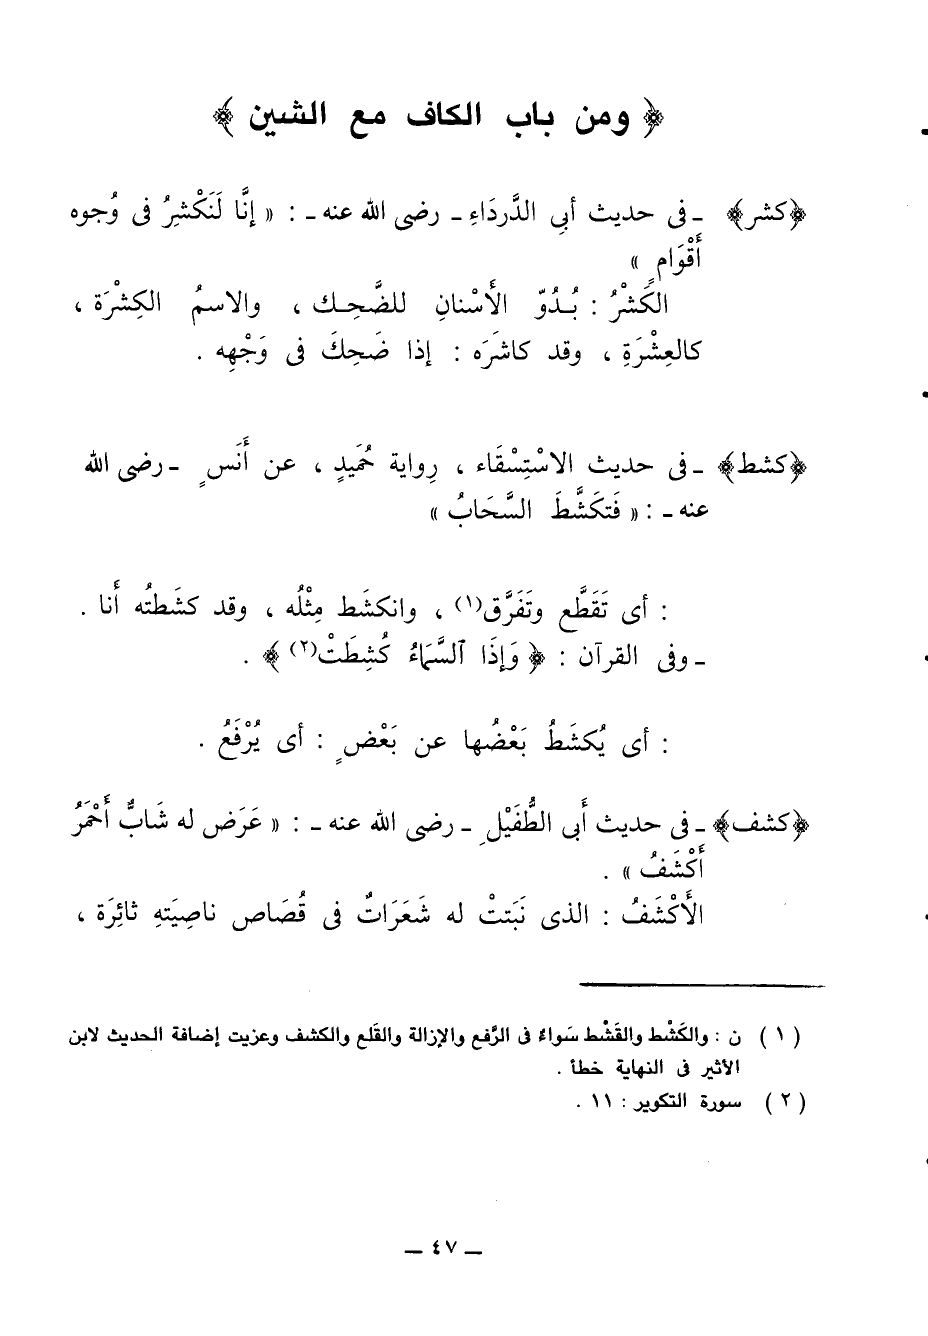 ﴿ ومن باب الكاف مع الشين ﴾
﴿كشر﴾ ـ فى حديث أبِى الدَّردَاءِ ـ رضى الله عنه ـ : « إنَّا لَنَكْشِرُ فى وُجوه
أَقْوَامٍ »
الكَشْرُ : بُدُوّ الأَسْنانِ للضَّحِك ، والاسمُ الكِشْرَة ،
كالعِشْرَةِ ، وقد كاشَرَه : إذا ضَحِكَ فى وَجْهِه .
﴿كشط﴾ ـ فى حديث الاسْتِسْقَاء ، رِواية حُمَيدٍ ، عن أَنَسٍ ـ رضى الله
عنه ـ : « فَتَكَشَّطَ السَّحَابُ »
: أى تَقَطَّع وتَفَرَّق(١) ، وانكشَط مِثْلُه ، وقد كشَطتُه أَنا .
ـ وفى القرآن : ﴿ وَإِذَا ٱلسَّمَآءُ كُشِطَتْ(٢) ﴾ .
: أى يُكشَطُ بَعْضُها عن بَعْضٍ : أى يُرْفَعُ .
﴿كشف﴾ ـ فى حديث أَبى الطُّفَيْلِ ـ رضى الله عنه ـ : « عَرَض له شَابٌّ أَحْمَرُ
أَكْشَفُ » .
الأَكْشَفُ : الذى نَبَتتْ له شَعَرَاتٌ فى قُصَاص ناصِيَتهِ ثائِرَة ،
( ١ ) ن : والكَشْط والقَشْط سَواءٌ فى الرَّفع والإزالة والقَلع والكشف وعزيت إضافة الحديث لابن
الأثير فى النهاية خطأ .
( ٢ ) سورة التكوير : ١١ .
ـ ٤٧ ـ